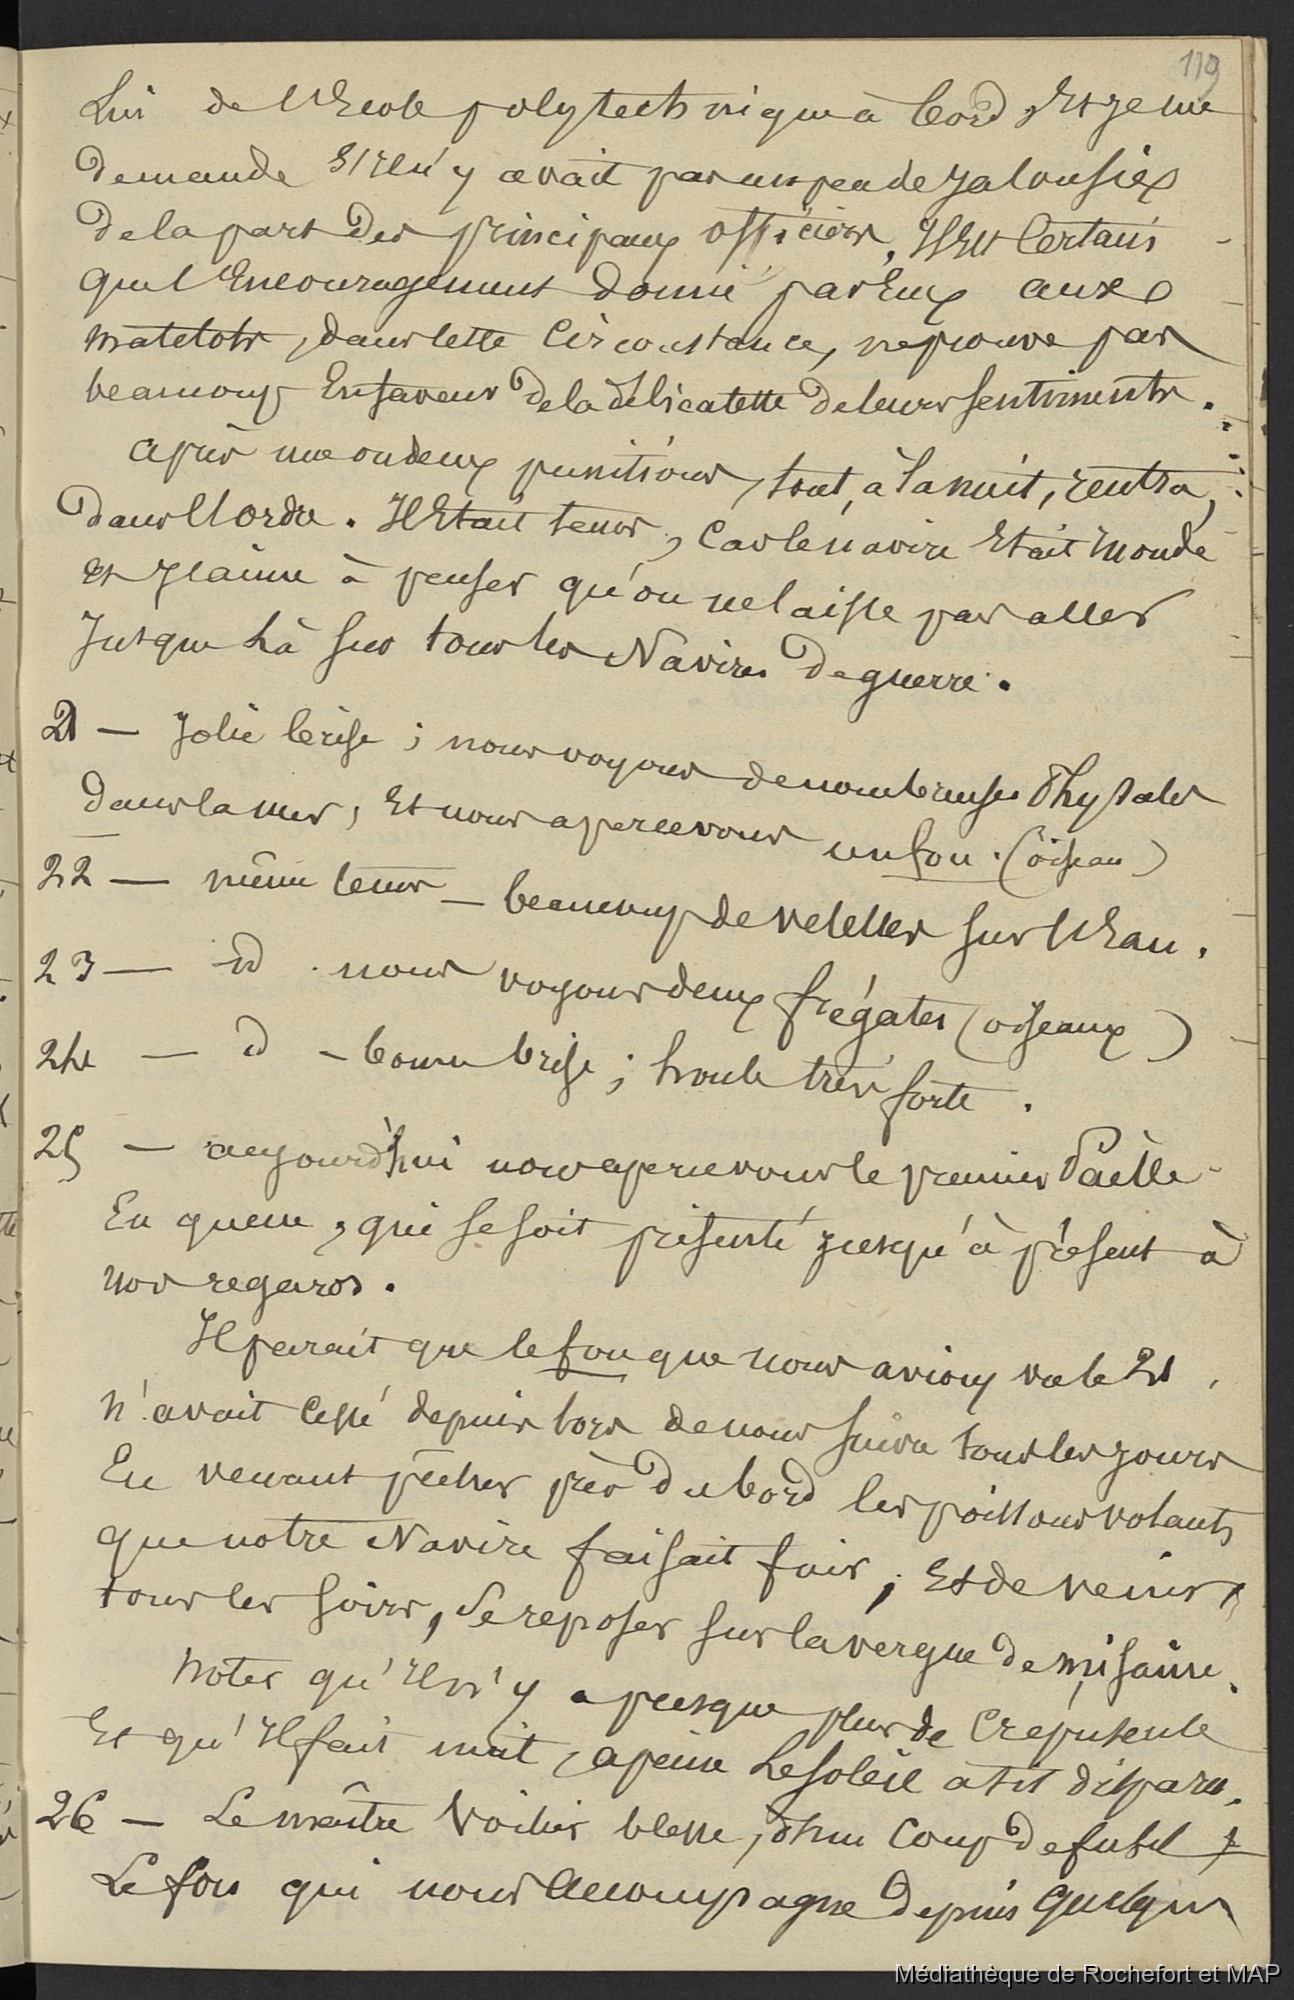 119
lui de l'Ecole polytechnique à bord, Et je me
demande s'Il n'y avait pas un peu de jalousie
de la part des principaux officiers. Il Est certain
que l'Encouragement donné par Eux aux
matelots, dans cette circonstance, ne prouve pas
beaucoup En faveur de la délicatesse de leurs sentiments.
après une ou deux punitions, tout, à la nuit, rentra,
dans l'ordre. Il Etait tems, car le navire Etait inondé
et j'aime à penser qu'on ne laisse pas aller
jusque là sur tous les Navires de guerre.
21 — Jolie brise ; nous voyons de nombreuses Physales
dans la mer, Et nous apercevons un fou. (oiseau)
22 — même tems — beaucoup de velelles sur l'Eau.
23 — id. nous voyons deux frégates (oiseaux)
24 — id – bonne brise ; houle très forte.
25 — aujourd'hui nous apercevons le premier Paille-
En queue, qui se soit présenté jusqu'à présent à
nos regards.
Il parait que le fou que nous avions vu le 21,
n'avait cessé depuis lors de nous suivre tous les jours
En venant pêcher près du bord les poissons volants
que notre Navire faisait fuir ; Et de venir,
tous les soirs, se reposer sur la vergue de misaine.
Notez qu'Il n'y a presque plus de crépuscule
Et qu'Il fait nuit, a peine le soleil a t'il disparu.
26 — Le maître voilier blesse, d'un coup de fusil,
Le fou qui nous accompagne depuis quelques
Médiathèque de Rochefort et MAP